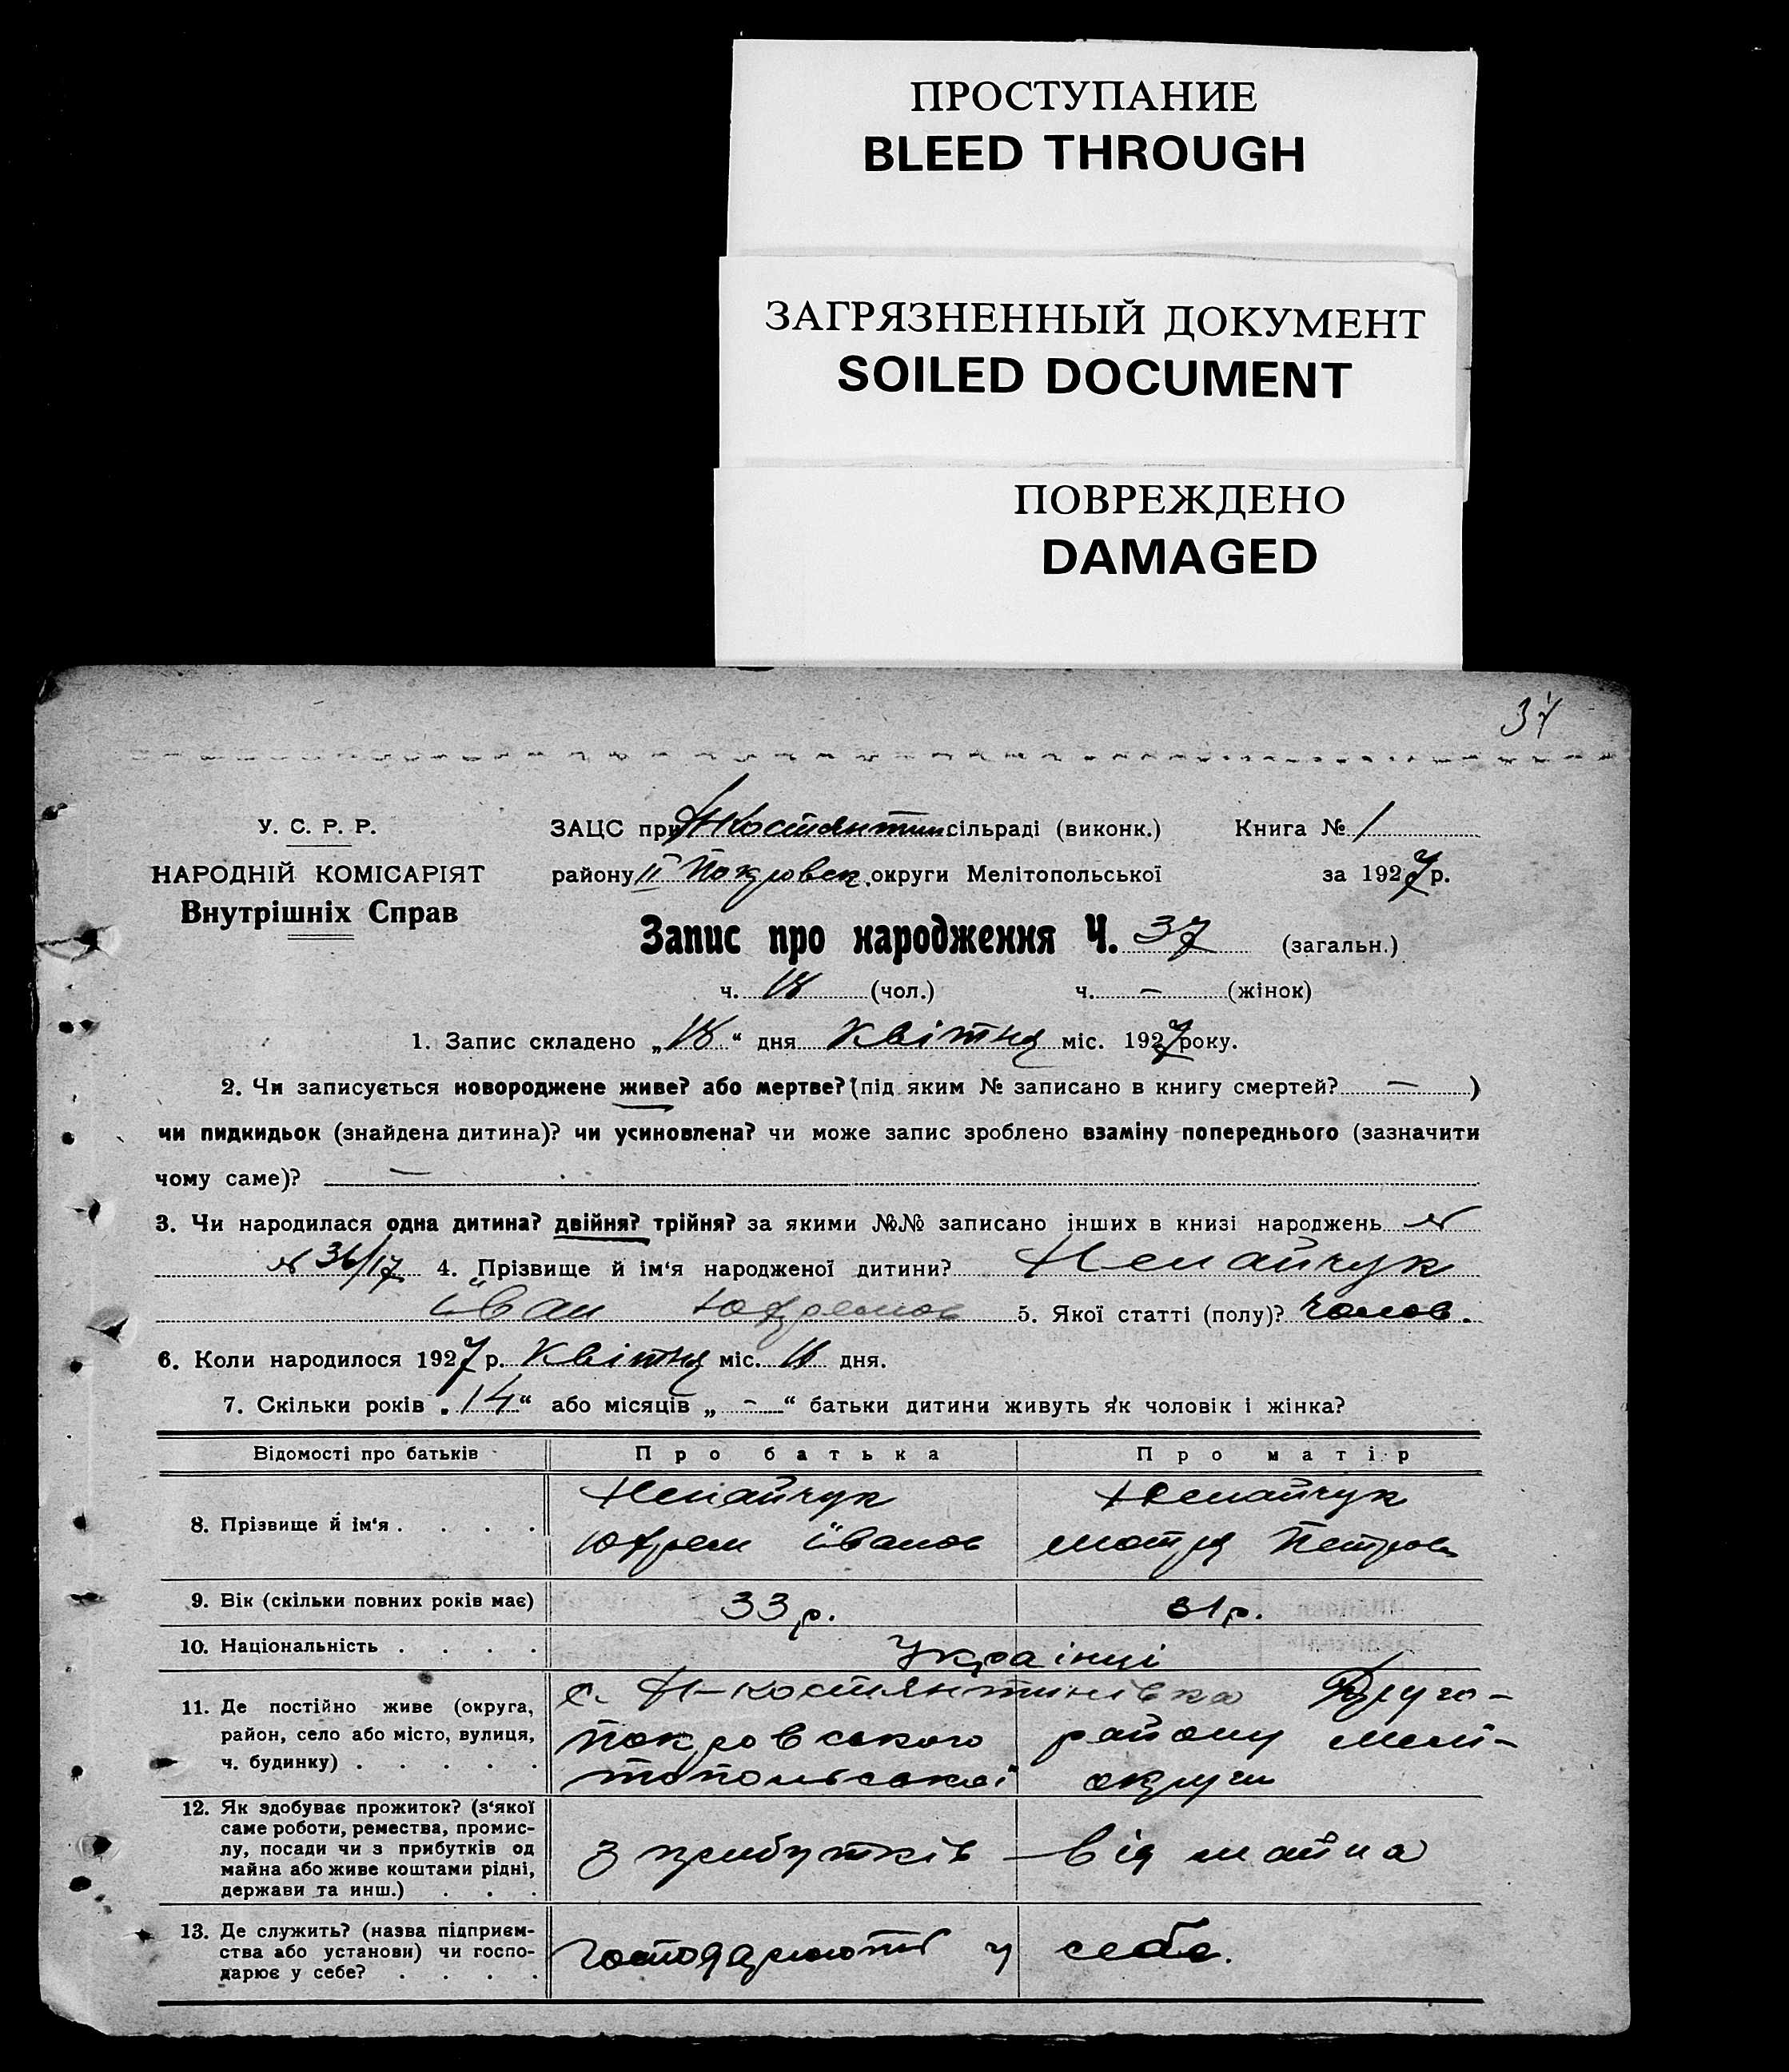 ПРОСТУПАНИЕ
BLEED THROUGH
ЗАГРЯЗНЕННЫЙ ДОКУМЕНТ
SOILED DOCUMENT
ПОВРЕЖДЕНО
DAMAGED
37
У. С. Р. Р.
НАРОДНІЙ КОМІСАРІЯТ
Внутрішніх Справ
ЗАЦС при Н Костянтин сільраді (виконк.) Книга № 1
району ІІ Покровськ. округи Мелітопольської за 1927 р.
Запис про народження Ч. 37 (загальн.)
ч. 18 (чол.) ч. — (жінок)
1. Запис складено „18“ дня Квітня міс. 1927 року.
2. Чи записується новороджене живе? або мертве? (під яким № записано в книгу смертей? — )
чи пидкидьок (знайдена дитина)? чи усиновлена? чи може запис зроблено взаміну попереднього (зазначити
чому саме)? —
3. Чи народилася одна дитина? двійня? трійня? за якими №№ записано інших в книзі народжень №
№ 36/17 4. Прізвище й ім‘я народженої дитини? Ненайчук
Іван Юхремов 5. Якої статті (полу)? чолов.
6. Коли народилося 1927 р. Квітня міс. 18 дня.
7. Скільки років „14“ або місяців „ - “ батьки дитини живуть як чоловік і жінка?
Відомості про батьків Про батька Про матір
8. Прізвище й ім‘я . . . . Ненайчук Ненайчук
Юхрем Іванов Мотря Петров
9. Вік (скільки повних років має) 33 р. 31 р.
10. Національність . . . . Українці
11. Де постійно живе (округа,
район, село або місто, вулиця,
ч. будинку) . . . . .
с. Н-Костянтинівка Друго-
покровського району Мелі-
топольської округи
12. Як здобуває прожиток? (з‘якої
саме роботи, ремества, промис-
лу, посади чи з прибутків од
майна або живе коштами рідні,
держави та инш.) . . .
З прибутків від майна
13. Де служить? (назва підприєм-
ства або установи) чи госпо-
дарює у себе? . . . .
господарюють у себе.